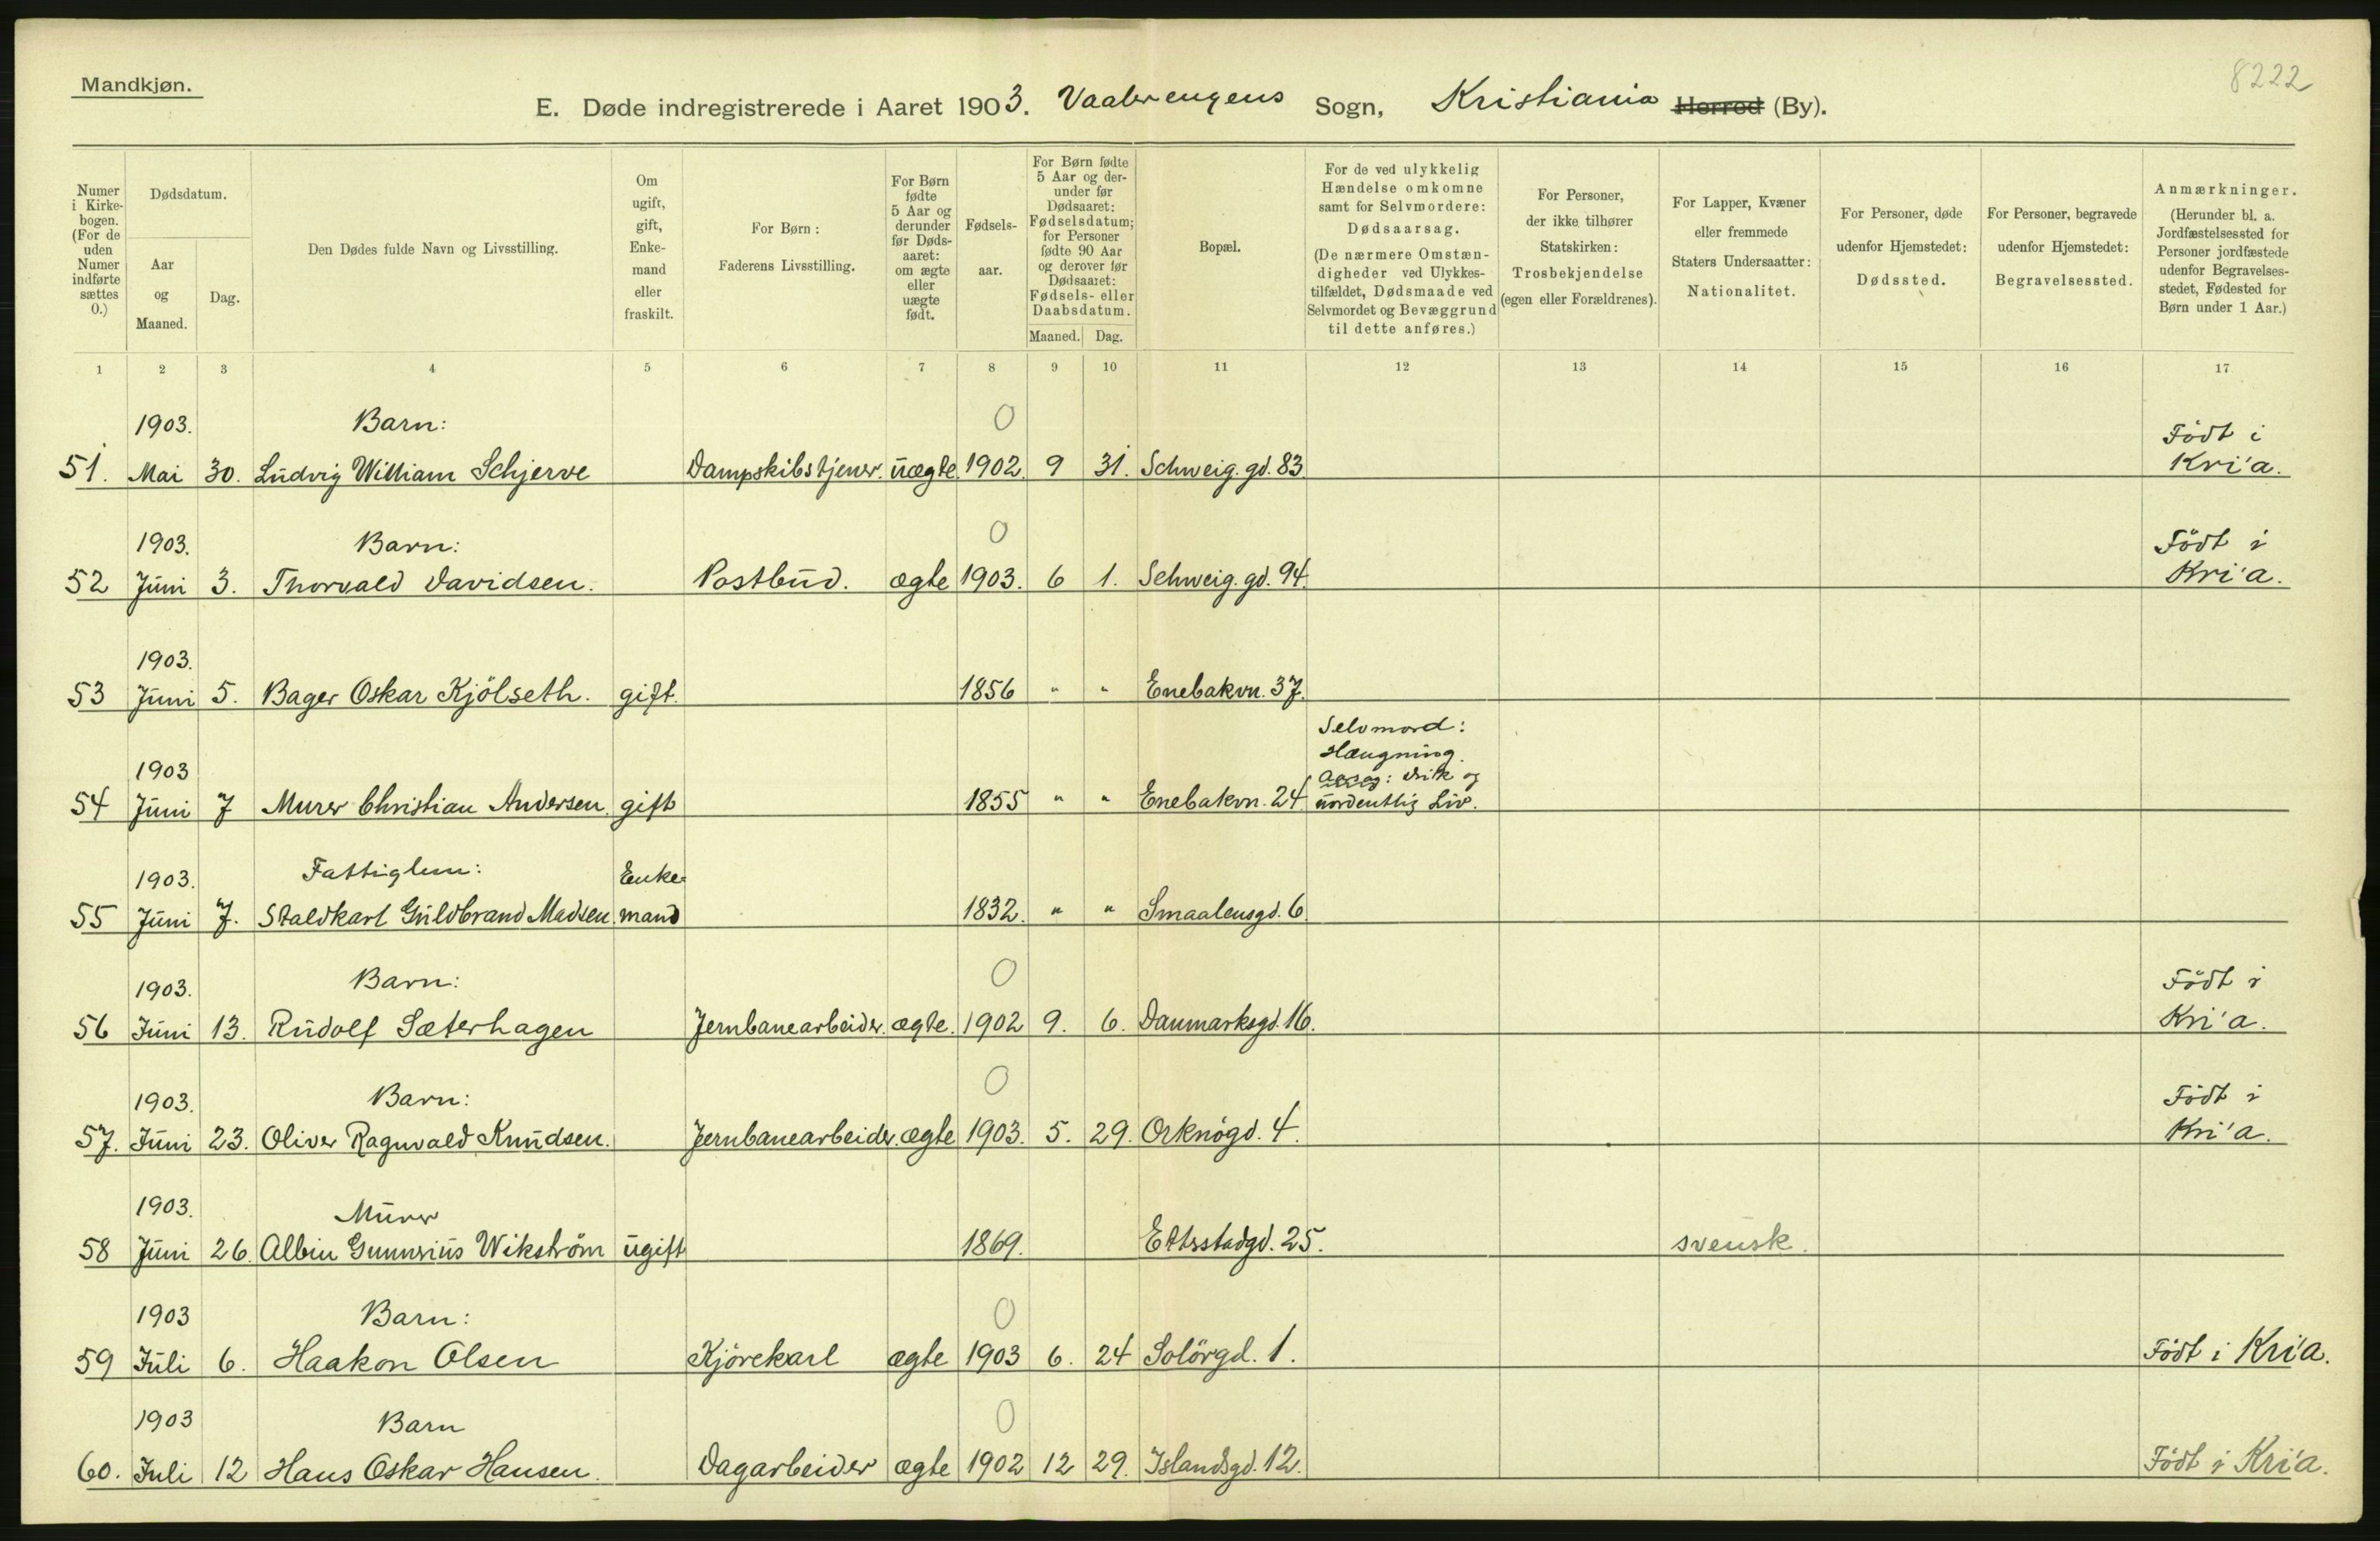 Mandkjøn.
8222
E. Døde indregistrerede i Aaret 1903. Vaalerengens Sogn, Kristiania Herred (By).
Numer i Kirkebogen. (For de uden Numer indførte sættes 0.)
Dødsdatum.
Aar og Maaned.
Dag.
Den Dødes fulde Navn og Livsstilling.
Om ugift, gift, Enkemand eller fraskilt.
For Børn: Faderens Livsstilling.
For Børn fødte 5 Aar og derunder før Dødsaaret: om ægte eller uægte født.
Fødselsaar.
For Børn fødte 5 Aar og derunder før Dødsaaret: Fødselsdatum; for Personer fødte 90 Aar og derover før Dødsaaret: Fødsels- eller Daabsdatum.
Maaned. Dag.
Bopæl.
For de ved ulykkelig Hændelse omkomne samt for Selvmordere: Dødsaarsag. (De nærmere Omstændigheder ved Ulykkestilfældet, Dødsmaade ved Selvmordet og Bevæggrund til dette anføres.)
For Personer, der ikke tilhører Statskirken: Trosbekjendelse (egen eller Forældrenes).
For Lapper, Kvæner eller fremmede Staters Undersaatter: Nationalitet.
For Personer, døde udenfor Hjemstedet: Dødssted.
For Personer, begravede udenfor Hjemstedet: Begravelsessted.
Anmærkninger. (Herunder bl. a. Jordfæstelsessted for Personer jordfæstede udenfor Begravelsesstedet, Fødested for Børn under 1 Aar.)
1 2 3 4 5 6 7 8 9 10 11 12 13 14 15 16 17
1903. Barn: 0 Födt i
51. Mai 30. Ludvig William Schjerve Dampskibstjener. uægte. 1902. 9 31. Schweig. gd. 83. Kri'a.
1903. Barn: 0 Födt i
52 Juni 3. Thorvald Davidsen. Postbud. ægte 1903. 6 1. Schweig. gd. 94. Kri'a.
1903.
53 Juni 5. Bager Oskar Kjölseth. gift. 1856 " " Enebakvn. 37.
Selvmord:
Hængning.
1903 Aarsag: drik og
54 Juni 7 Murer Christian Andersen. gift 1855 " " Enebakvn. 24 uordentlig Liv.
1903. Fattiglem: Enke=
55 Juni 7. Staldkarl Guldbrand Madsen mand 1832. " " Smaalensgd. 6.
1903. Barn: 0 Födt i
56 Juni 13. Rudolf Sæterhagen Jernbanearbeider. ægte. 1902 9. 6. Danmarksgd. 16. Kri'a.
1903. Barn: 0 Födt i
57. Juni 23. Oliver Ragnvald Knudsen. Jernbanearbeider. ægte 1903. 5. 29. Orknögd. 4. Kri'a.
1903. Murer
58 Juni 26. Albin Gunnerius Wikström ugift 1869. Etterstadgd. 25. svensk.
1903 Barn: 0
59 Juli 6. Haakon Olsen Kjörekarl ægte 1903 6. 24 Solörgd. 1. Födt i Kri'a.
1903 Barn 0
60. Juli 12 Hans Oskar Hansen. Dagarbeider ægte 1902 12 29. Islandsgd. 12. Födt i Kri'a.